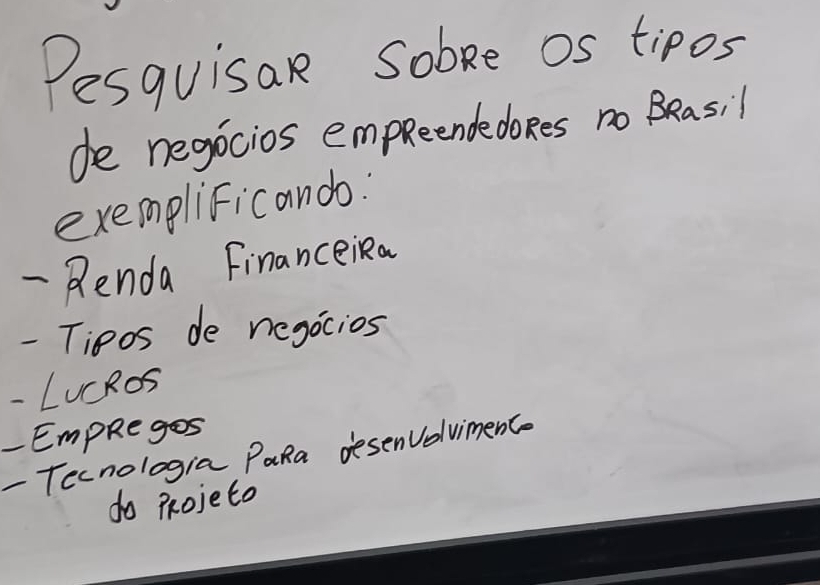 Pesquisar sobre os tipos
de negócios empreendedores no Brasil
exemplificando:
- Renda Financeira
- Tipos de negócios
- Lucros
- Empregos
- Tecnologia para desenvolvimento
do projeto